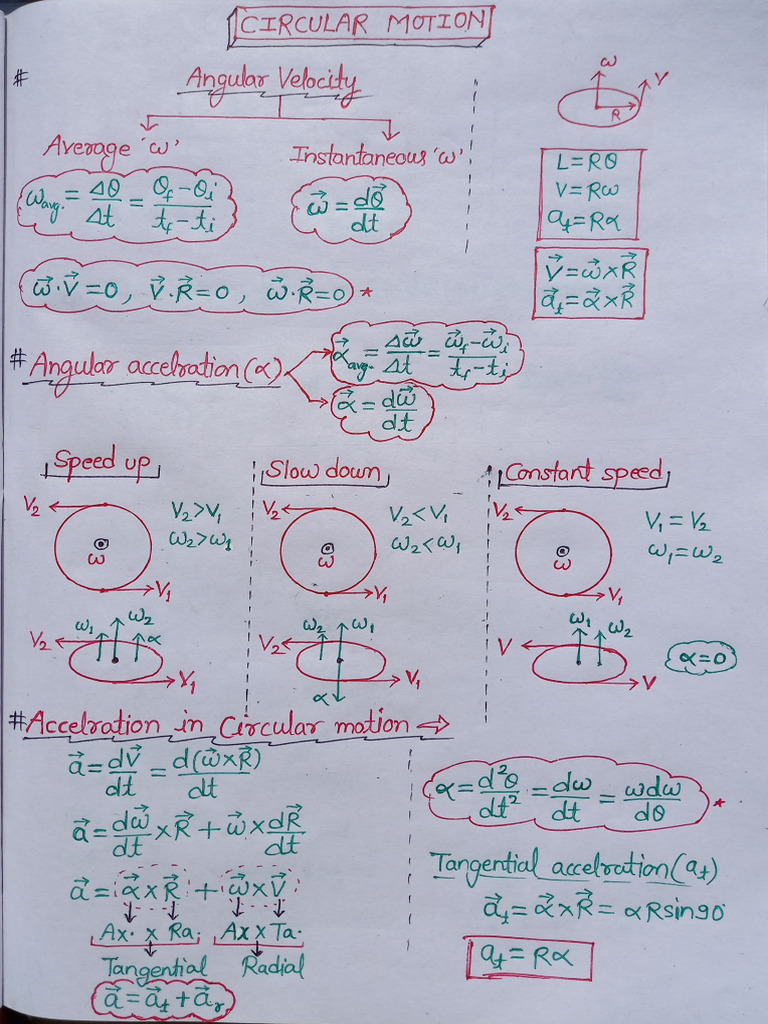 CIRCULAR MOTION
# Angular Velocity
Average 'ω'
ω_avg. = Δθ/Δt = (θ_f - θ_i)/(t_f - t_i)
Instantaneous 'ω'
ω⃗ = dθ⃗/dt
ω
V
R
L = Rθ
V = Rω
a_t = Rα
V⃗ = ω⃗ × R⃗
a⃗_t = α⃗ × R⃗
ω⃗·V⃗ = 0, V⃗·R⃗ = 0, ω⃗·R⃗ = 0 *
# Angular accelration (α)
α⃗_avg. = Δω⃗/Δt = (ω⃗_f - ω⃗_i)/(t_f - t_i)
α⃗ = dω⃗/dt
Speed up
V₂
V₂ > V₁
ω₂ > ω₁
ω
V₁
ω₁ ω₂ α
V₂
V₁
Slow down
V₂
V₂ < V₁
ω₂ < ω₁
ω
V₁
ω₂ ω₁
V₂
V₁
α
Constant speed
V₂
V₁ = V₂
ω₁ = ω₂
ω
V₁
ω₁ ω₂
V
V
α = 0
# Accelration in Circular motion ⇒
a⃗ = dV⃗/dt = d(ω⃗ × R⃗)/dt
a⃗ = dω⃗/dt × R⃗ + ω⃗ × dR⃗/dt
a⃗ = α⃗ × R⃗ + ω⃗ × V⃗
Ax. × Ra. Ax × Ta.
Tangential Radial
a⃗ = a⃗_t + a⃗_r
α = d²θ/dt² = dω/dt = ωdω/dθ *
Tangential accelration (a_t)
a⃗_t = α⃗ × R⃗ = αRsin90
a_t = Rα